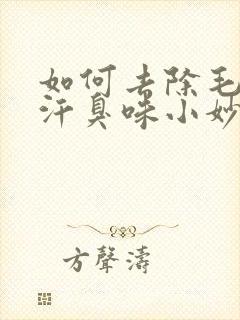 如何去除毛
汗臭味小妙
方聲濤